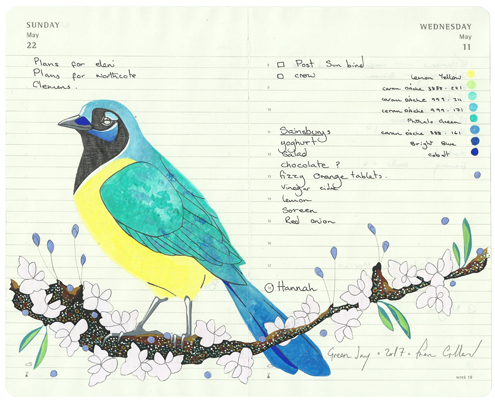 SUNDAY
May
22
Plans for eleni
Plans for Northcote
Clemens.
WEDNESDAY
May
11
Post. Sun bird
crow
Lemon Yellow
caran d'ache
caran d'ache 999.
caran d'ache 999. 171
Phthalo Green
caran d'ache 999. 161
Bright Blue
cobalt
Sainsburys
yoghurt
salad
chocolate ?
fizzy Orange tablets.
vinegar cider
lemon
Soreen
Red onion
Hannah
Green Jay • 2017 •
week 19